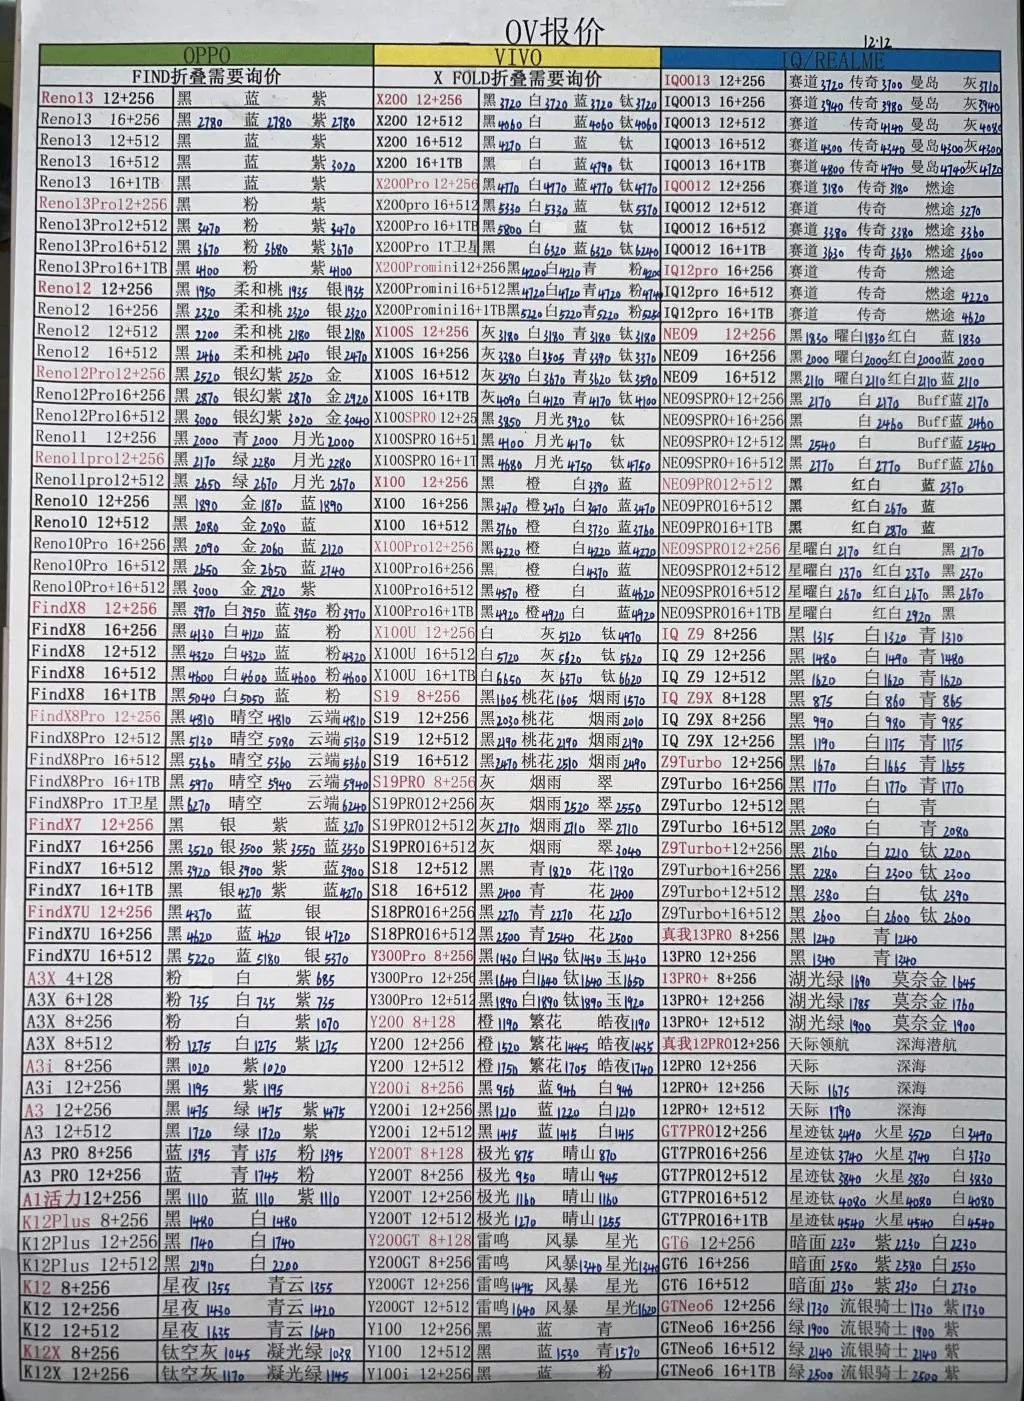 OV报价
12.12
OPPO
FIND折叠需要询价
Reno13 12+256 黑 蓝 紫
Reno13 16+256 黑2780 蓝2780 紫2780
Reno13 12+512 黑 蓝 紫
Reno13 16+512 黑 蓝 紫3020
Reno13 16+1TB 黑 蓝 紫
Reno13Pro12+256 黑 粉 紫
Reno13Pro12+512 黑3470 粉 紫3470
Reno13Pro16+512 黑3670 粉3680 紫3670
Reno13Pro16+1TB 黑4100 粉 紫4100
Reno12 12+256 黑1950 柔和桃1935 银1935
Reno12 16+256 黑2320 柔和桃2320 银2320
Reno12 12+512 黑2200 柔和桃2180 银2180
Reno12 16+512 黑2460 柔和桃2470 银2470
Reno12Pro12+256 黑2520 银幻紫2520 金
Reno12Pro16+256 黑2870 银幻紫2870 金2920
Reno12Pro16+512 黑3000 银幻紫3020 金3040
Reno11 12+256 黑2000 青2000 月光2000
Reno11pro12+256 黑2170 绿2280 月光2280
Reno11pro12+512 黑2650 绿2670 月光2670
Reno10 12+256 黑1890 金1870 蓝1890
Reno10 12+512 黑2080 金2080 蓝
Reno10Pro 16+256 黑2090 金2060 蓝2120
Reno10Pro 16+512 黑2650 金2650 蓝2740
Reno10Pro+16+512 黑3000 金2920 紫
FindX8 12+256 黑3970 白3950 蓝3950 粉3970
FindX8 16+256 黑4130 白4120 蓝 粉
FindX8 12+512 黑4320 白4320 蓝 粉4320
FindX8 16+512 黑4600 白4600 蓝4600 粉4600
FindX8 16+1TB 黑5040 白5050 蓝 粉
FindX8Pro 12+256 黑4810 晴空4810 云端4810
FindX8Pro 12+512 黑5130 晴空5080 云端5130
FindX8Pro 16+512 黑5360 晴空5360 云端5360
FindX8Pro 16+1TB 黑5970 晴空5940 云端5940
FindX8Pro 1T卫星 黑6270 晴空 云端6240
FindX7 12+256 黑 银 紫 蓝3270
FindX7 16+256 黑3520 银3500 紫3550 蓝3530
FindX7 16+512 黑3920 银3900 紫 蓝3900
FindX7 16+1TB 黑 银4270 紫 蓝4270
FindX7U 12+256 黑4370 蓝 银
FindX7U 16+256 黑4620 蓝4620 银4720
FindX7U 16+512 黑5220 蓝5180 银5370
A3X 4+128 粉 白 紫685
A3X 6+128 粉735 白735 紫735
A3X 8+256 粉 白 紫1070
A3X 8+512 粉1275 白1275 紫1275
A3i 8+256 黑1020 紫1020
A3i 12+256 黑1195 紫1195
A3 12+256 黑1475 绿1475 紫1475
A3 12+512 黑1720 绿1720 紫
A3 PRO 8+256 蓝1395 青1375 粉1395
A3 PRO 12+256 蓝 青1745 粉
A1活力12+256 黑1110 蓝1110 紫1110
K12Plus 8+256 黑1480 白1480
K12Plus 12+256 黑1740 白1740
K12Plus 12+512 黑2190 白2200
K12 8+256 星夜1355 青云1355
K12 12+256 星夜1430 青云1420
K12 12+512 星夜1635 青云1640
K12X 8+256 钛空灰1045 凝光绿1038
K12X 12+256 钛空灰1170 凝光绿1145
VIVO
X FOLD折叠需要询价
X200 12+256 黑3720 白3720 蓝3720 钛3720
X200 12+512 黑4060 白 蓝4060 钛4060
X200 16+512 黑4270 白 蓝 钛
X200 16+1TB 白 蓝4790 钛
X200Pro 12+256 黑4770 白4770 蓝4770 钛4770
X200pro 16+512 黑5330 白5330 蓝 钛5370
X200Pro 16+1TB 黑5800 白 蓝 钛
X200Pro 1T卫星 黑 白6320 蓝6320 钛6240
X200Promini12+256 黑4200 白4210 青 粉4200
X200Promini16+512 黑4720 白4720 青4720 粉4740
X200Promini16+1TB 黑5220 白5220 青5220 粉5250
X100S 12+256 灰3180 白3180 青3180 钛3180
X100S 16+256 灰3380 白3505 青3390 钛3370
X100S 16+512 灰3590 白3670 青3620 钛3590
X100S 16+1TB 灰4090 白4120 青4170 钛4100
X100SPRO 12+25 黑3850 月光3920 钛
X100SPRO 16+51 黑4100 月光4170 钛
X100SPRO 16+1T 黑4680 月光4750 钛4750
X100 12+256 黑 橙 白3390 蓝
X100 16+256 黑3470 橙3470 白3470 蓝3470
X100 16+512 黑3760 橙 白3730 蓝3760
X100Pro12+256 黑4220 橙 白4220 蓝4220
X100Pro16+256 黑 橙 白4370 蓝
X100Pro16+512 黑4570 橙 白 蓝4620
X100Pro16+1TB 黑4920 橙4920 白 蓝4920
X100U 12+256 白 灰5120 钛4970
X100U 16+512 白5720 灰5620 钛5620
X100U 16+1TB 白6650 灰6370 钛6620
S19 8+256 黑1605 桃花1605 烟雨1570
S19 12+256 黑2030 桃花 烟雨2010
S19 12+512 黑2190 桃花2190 烟雨2190
S19 16+512 黑2470 桃花2510 烟雨2490
S19PRO 8+256 灰 烟雨 翠
S19PRO12+256 灰 烟雨2520 翠2550
S19PRO12+512 灰2710 烟雨2710 翠2710
S19PRO16+512 灰 烟雨 翠3040
S18 12+512 黑 青1820 花1780
S18 16+512 黑2400 青 花2400
S18PRO16+256 黑2270 青2270 花2270
S18PRO16+512 黑2500 青2540 花2500
Y300Pro 8+256 黑1430 白1430 钛1430 玉1430
Y300Pro 12+256 黑1640 白1640 钛1640 玉1650
Y300Pro 12+512 黑1890 白1890 钛1890 玉1920
Y200 8+128 橙1190 繁花 皓夜1190
Y200 12+256 橙1520 繁花1445 皓夜1435
Y200 12+512 橙1750 繁花1705 皓夜1740
Y200i 8+256 黑956 蓝946 白946
Y200i 12+256 黑1210 蓝1220 白1210
Y200i 12+512 黑1415 蓝1415 白1415
Y200T 8+128 极光875 晴山870
Y200T 8+256 极光950 晴山945
Y200T 12+256 极光1160 晴山1160
Y200T 12+512 极光1270 晴山1255
Y200GT 8+128 雷鸣 风暴 星光
Y200GT 8+256 雷鸣 风暴1340 星光1340
Y200GT 12+256 雷鸣1495 风暴 星光
Y200GT 12+512 雷鸣1640 风暴 星光1620
Y100 12+256 黑 蓝 青
Y100 12+512 黑 蓝1530 青1570
Y100i 12+256 黑 蓝 粉
IQ/REALME
IQOO13 12+256 赛道3720 传奇3700 曼岛 灰3710
IQOO13 16+256 赛道3940 传奇3980 曼岛 灰3940
IQOO13 12+512 赛道 传奇4140 曼岛 灰4080
IQOO13 16+512 赛道4300 传奇4340 曼岛4300 灰4300
IQOO13 16+1TB 赛道4800 传奇4740 曼岛4740 灰4720
IQOO12 12+256 赛道3180 传奇3180 燃途
IQOO12 12+512 赛道 传奇 燃途3270
IQOO12 16+512 赛道3380 传奇3380 燃途3360
IQOO12 16+1TB 赛道3630 传奇3630 燃途3600
IQ12pro 16+256 赛道 传奇 燃途
IQ12pro 16+512 赛道 传奇 燃途4220
IQ12pro 16+1TB 赛道 传奇 燃途4620
NEO9 12+256 黑1830 曜白1830 红白 蓝1830
NEO9 16+256 黑2000 曜白2000 红白2000 蓝2000
NEO9 16+512 黑2110 曜白2110 红白2110 蓝2110
NEO9SPRO+12+256 黑2170 白2170 Buff蓝2170
NEO9SPRO+16+256 黑 白2460 Buff蓝2460
NEO9SPRO+12+512 黑2540 白 Buff蓝2540
NEO9SPRO+16+512 黑2770 白2770 Buff蓝2760
NEO9PRO12+512 黑 红白 蓝2370
NEO9PRO16+512 黑 红白2670 蓝
NEO9PRO16+1TB 黑 红白2870 蓝
NEO9SPRO12+256 星曜白2170 红白 黑2170
NEO9SPRO12+512 星曜白2370 红白2370 黑2370
NEO9SPRO16+512 星曜白2670 红白2670 黑2670
NEO9SPRO16+1TB 星曜白 红白2920 黑
IQ Z9 8+256 黑1315 白1320 青1310
IQ Z9 12+256 黑1480 白1490 青1480
IQ Z9 12+512 黑1620 白1620 青1620
IQ Z9X 8+128 黑875 白860 青865
IQ Z9X 8+256 黑990 白980 青985
IQ Z9X 12+256 黑1190 白1175 青1175
Z9Turbo 12+256 黑1670 白1665 青1655
Z9Turbo 16+256 黑1770 白1770 青1770
Z9Turbo 12+512 黑 白 青
Z9Turbo 16+512 黑2080 白 青2080
Z9Turbo+12+256 黑2160 白2210 钛2200
Z9Turbo+16+256 黑2280 白2300 钛2300
Z9Turbo+12+512 黑2380 白 钛2390
Z9Turbo+16+512 黑2600 白2600 钛2600
真我13PRO 8+256 黑1240 青1240
13PRO 12+256 黑1340 青1340
13PRO+ 8+256 湖光绿1690 莫奈金1645
13PRO+ 12+256 湖光绿1785 莫奈金1760
13PRO+ 12+512 湖光绿1900 莫奈金1900
真我12PRO12+256 天际领航 深海潜航
12PRO 12+256 天际 深海
12PRO+ 12+256 天际1675 深海
12PRO+ 12+512 天际1790 深海
GT7PRO12+256 星迹钛3490 火星3520 白3490
GT7PRO16+256 星迹钛3740 火星3740 白3730
GT7PRO12+512 星迹钛3840 火星3830 白3830
GT7PRO16+512 星迹钛4080 火星4080 白4080
GT7PRO16+1TB 星迹钛4540 火星4540 白4540
GT6 12+256 暗面2230 紫2230 白2230
GT6 16+256 暗面2580 紫2580 白2530
GT6 16+512 暗面2730 紫2730 白2730
GTNeo6 12+256 绿1730 流银骑士1730 紫1730
GTNeo6 16+256 绿1900 流银骑士1900 紫
GTNeo6 16+512 绿2140 流银骑士2140 紫
GTNeo6 16+1TB 绿2500 流银骑士2500 紫